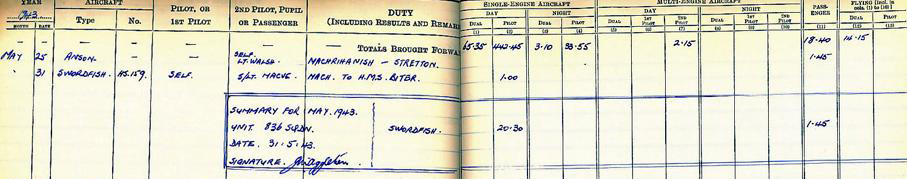 YEAR AIRCRAFT PILOT, OR 2ND PILOT, PUPIL DUTY SINGLE-ENGINE AIRCRAFT MULTI-ENGINE AIRCRAFT PASS- FLYING [Incl. in
1943. Type No. 1ST PILOT OR PASSENGER (INCLUDING RESULTS AND REMAR DAY NIGHT DAY NIGHT ENGER cols. (1) to (10)]
MONTH DATE DUAL PILOT DUAL PILOT DUAL 1ST PILOT 2ND PILOT DUAL 1ST PILOT 2ND PILOT DUAL PILOT
(1) (2) (3) (4) (5) (6) (7) (8) (9) (10) (11) (12) (13)
— — — — — — — TOTALS BROUGHT FORWA 65.35 442.45 3.10 33.55 2.15 18.40 14.15
MAY 25 ANSON. SELF. LT. WALSH. MACHRIHANISH — STRETTON. 1.45
" 31 SWORDFISH. HS.159. SELF. S/LT. MACH. TO H.M.S. BITER. 1.00
SUMMARY FOR MAY. 1943.
UNIT. 836 SQDN. SWORDFISH. 20.30 1.45
DATE. 31.5.43.
SIGNATURE.